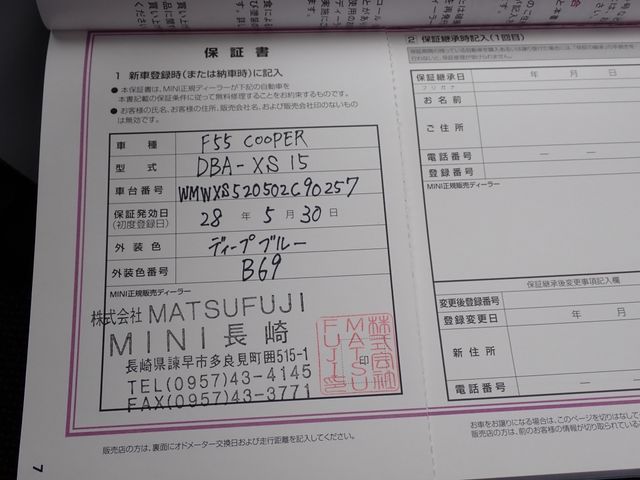 保証書
1 新車登録時(または納車時)に記入
● 本保証書は、MINI正規ディーラーが下記の自動車を
本書記載の保証条件に従って無料修理することをお約束するものです。
● お客様の氏名、お客様の住所、販売会社名、および販売会社印のないもの
は無効です。
車種 F55 COOPER
型式 DBA-XS15
車台番号 WMWXS520502C90257
保証発効日 28 年 5 月 30 日
(初度登録日)
外装色 ディープブルー
外装色番号 B69
MINI正規販売ディーラー
株式会社 MATSUFUJI
MINI長崎
長崎県諫早市多良見町囲515-1
TEL(0957)43-4145
FAX(0957)43-3771
株式会社
MATSU
FUJI
印
販売店の方は、裏面にオドメーター交換日および走行距離を記入してください。
7
2 保証継承時記入(1回目)
保証継承日 年 月
フリガナ
お名前
ご住所
電話番号 — —
登録番号
MINI正規販売ディーラー
保証継承後変更事項記入欄
変更後登録番号
登録変更日 年 月
新住所
電話番号 — —
お車をお譲りになる場合は、このページを切りはなして
販売店の方は、前のお客様の情報が切り取られている